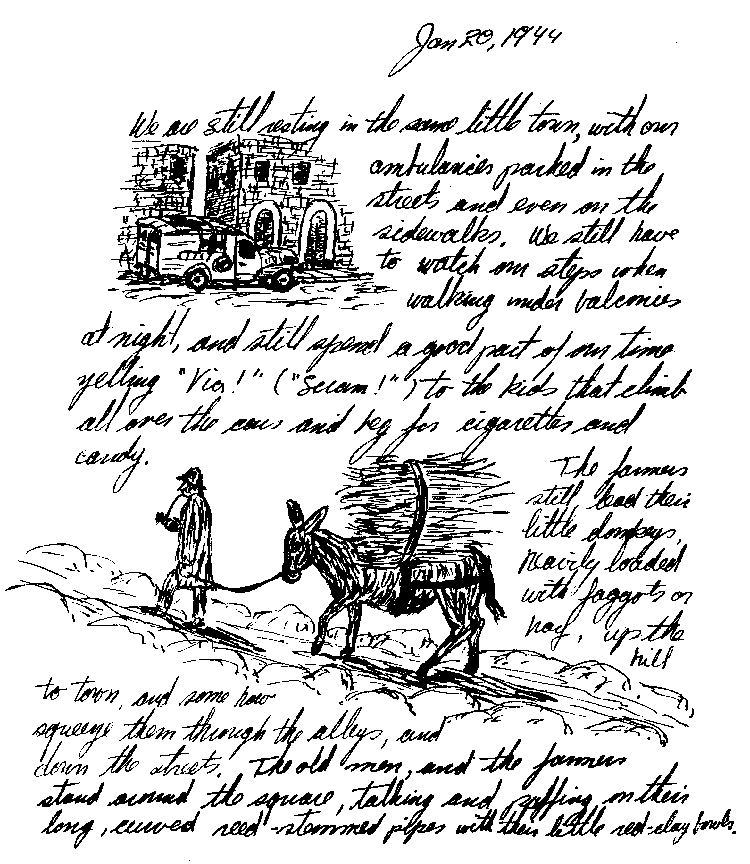 Jan 20, 1944
We are still resting in the same little town, with our
ambulances parked in the
streets and even on the
sidewalks. We still have
to watch our steps when
walking under balconies
at night, and still spend a good part of our time
yelling "Via!" ("Scram!") to the kids that climb
all over the cars and beg for cigarettes and
candy.
The farmers
still lead their
little donkeys,
heavily loaded
with faggots or
hay, up the
hill
to town, and some how
squeeze them through the alleys, and
down the streets. The old men, and the farmers
stand around the square, talking and puffing on their
long, curved reed-stemmed pipes with their little red-clay bowls.